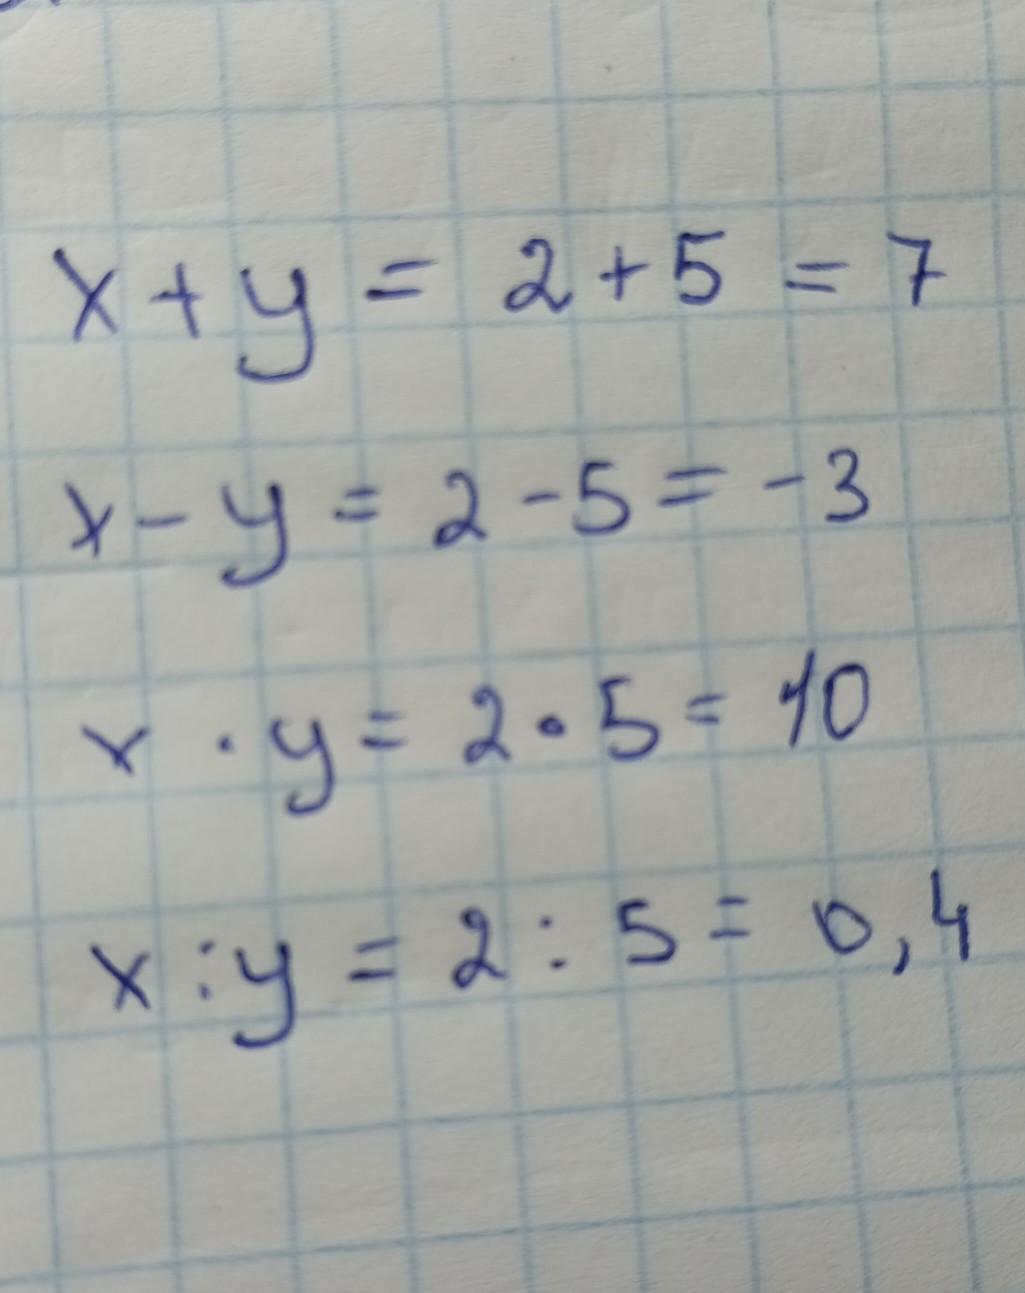 x + y = 2 + 5 = 7
x - y = 2 - 5 = -3
x · y = 2 · 5 = 10
x : y = 2 : 5 = 0,4